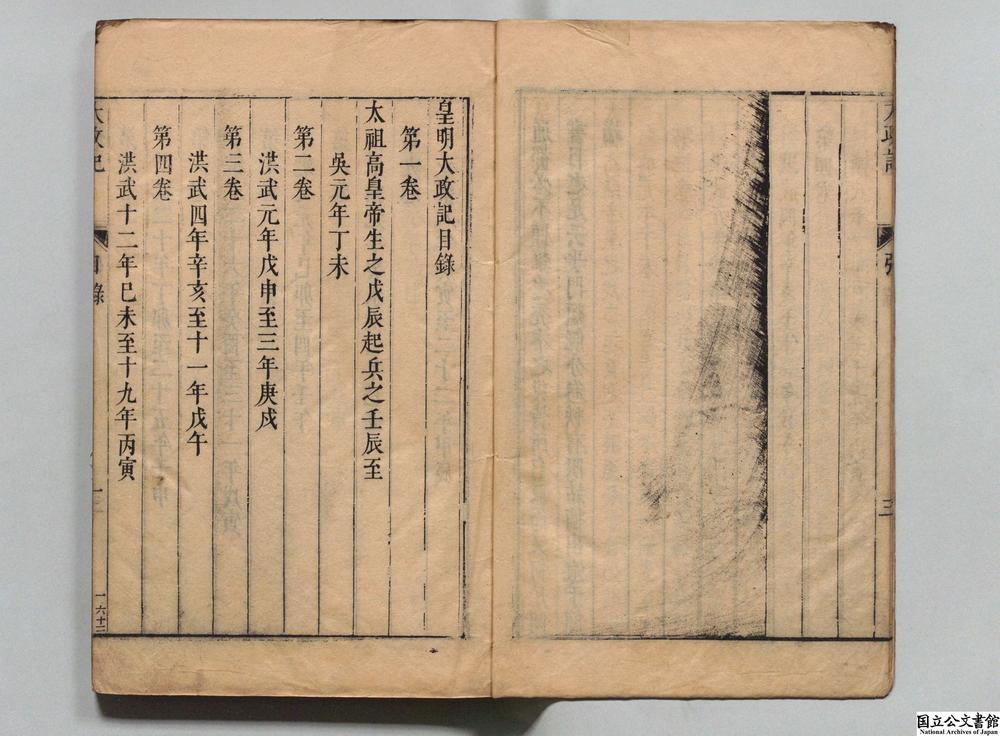 三
皇明大政記目錄
第一卷
太祖高皇帝生之戊辰起兵之壬辰至
吳元年丁未
第二卷
洪武元年戊申至三年庚戌
第三卷
洪武四年辛亥至十一年戊午
第四卷
洪武十二年巳未至十九年丙寅
大政記
目錄
国立公文書館
National Archives of Japan